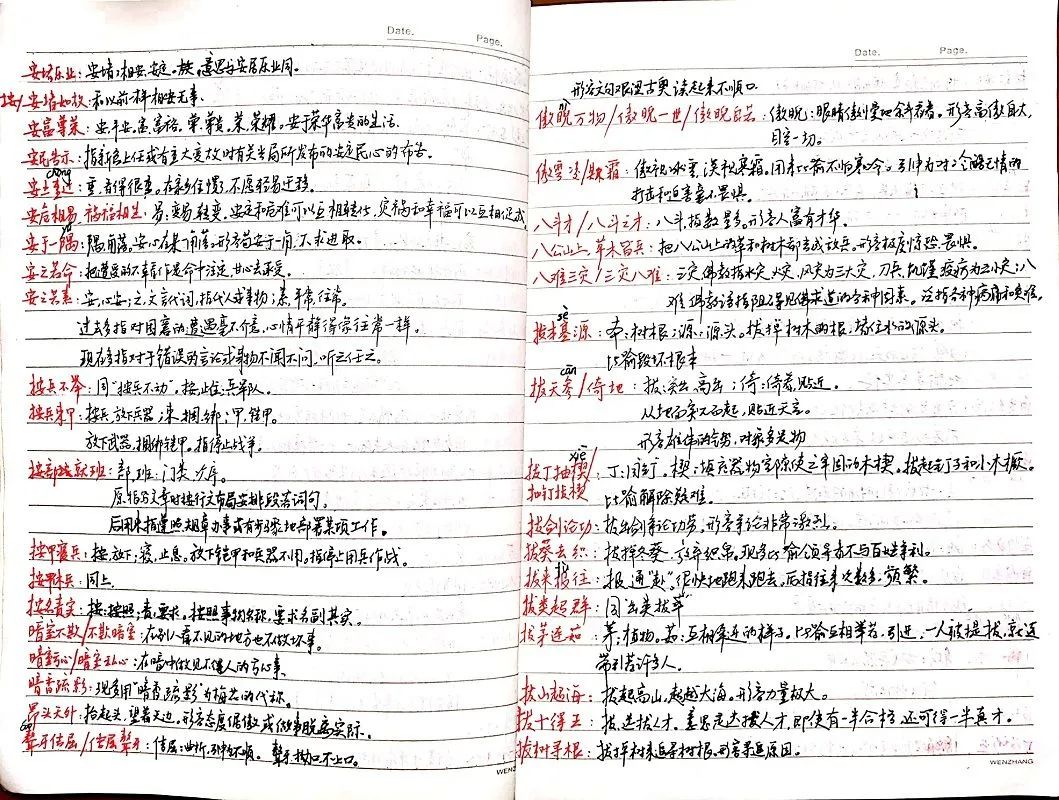 Date.
Page.
安堵乐业：安堵：相安，安定。意思与安居乐业同。
按/安堵如故：和以前一样相安无事。
安富尊荣：安，平安。富，富裕。尊，尊贵。荣，荣耀。安于荣华富贵的生活。
安民告示：指新官上任或有重大变故时有关当局所发布的安定民心的布告。
chóng
安土重迁：重：看得很重。在家乡住惯了，不愿轻易迁移。
安危相易，祸福相生：易：变易，转变。安定和危难可以互相转化，灾祸和幸福可以互相促成。
yú
安于一隅：隅：角落。安心在某一角落。形容苟安于一角，不求进取。
安之若命：把遭受的不幸看作是命中注定，甘心去承受。
安之若素：安：安心；之：文言代词，指代人或事物；素：平常，往常。
过去多指对困窘的遭遇毫不介意，心情平静得像往常一样。
现在多指对于错误的言论或事物不闻不问，听之任之。
按兵不举：同“按兵不动”。按：止住；兵：军队。
按兵束甲：按兵：放下兵器；束：捆绑；甲：铠甲。
放下武器，捆绑铠甲。指停止战事。
按部就班：部、班：门类，次序。
原指写文章时按行文布局安排段落词句。
后用来指遵照规章办事或有步骤地部署某项工作。
按甲寝兵：按：放下；寝：止息。放下铠甲和兵器不用。指停止用兵作战。
按甲休兵：同上。
按名责实：按：按照；责：要求。按照事物名称，要求名副其实。
暗室不欺/不欺暗室：在别人看不见的地方也不做坏事。
暗室亏心/暗室私心：在暗中做见不得人的亏心事。
暗香疏影：现多用“暗香疏影”为梅花的代称。
昂头天外：抬起头，望着天边。形容态度倨傲或做事脱离实际。
聱牙佶屈/佶屈聱牙：佶屈：曲折，引申为不顺。聱牙：拗口不上口。
WENZHANG
Date.
Page.
形容文句艰涩古奥，读起来不顺口。
傲睨万物/傲睨一世/傲睨自若：傲睨：眼睛傲慢地斜着看。形容高傲自大，
目空一切。
傲雪凌/欺霜：傲视冰雪，欺压寒霜。用来比喻不怕寒冷。引申为对冷酷无情的
打击和迫害毫不畏惧。
八斗才/八斗之才：八斗：指数量多。形容人富有才华。
八公山上，草木皆兵：把八公山上的草和树木都当成敌兵。形容极度惊恐、畏惧。
八难三灾/三灾八难：三灾：佛教指水灾、火灾、风灾为三大灾，刀兵、饥馑、疫疠为三小灾；八
难：佛教语，指阻碍见佛求道的各种因素。泛指各种病痛和灾难。
sè
拔本塞源：本：树根；源：源头。拔掉树木的根，堵住水的源头。
比喻毁坏根本
拔天参/倚地：拔：突出，高耸；倚：倚着，贴近。
从地面突兀而起，贴近天空。
xiē
拔丁抽楔/：丁：同“钉”。楔：填充器物空隙使之牢固的木楔。拔起钉子和小木橛。
扣钉拔楔
比喻解除疑难。
拔剑论功：拔出剑争论功劳。形容争论非常激烈。
拔葵去织：拔掉冬葵，弃牢织帛。现多比喻领导者不与百姓争利。
fù
拔来报往：报：通“赴”，很快地跑来跑去，后指往来次数多，频繁。
拔类超群：同“出类拔萃”
拔茅连茹：茅：植物。茹：互相牵连的样子。比喻互相荐举，引进，一人被提拔，就连
带引荐许多人。
拔山超海：拔起高山，超越大海。形容力量极大。
拔十得五：拔：选拔人才。意思是选拔人才，即使有一半合格，还可得一半真才。
拔树寻根：拔掉树来追寻树根。形容追原因。
WENZHANG